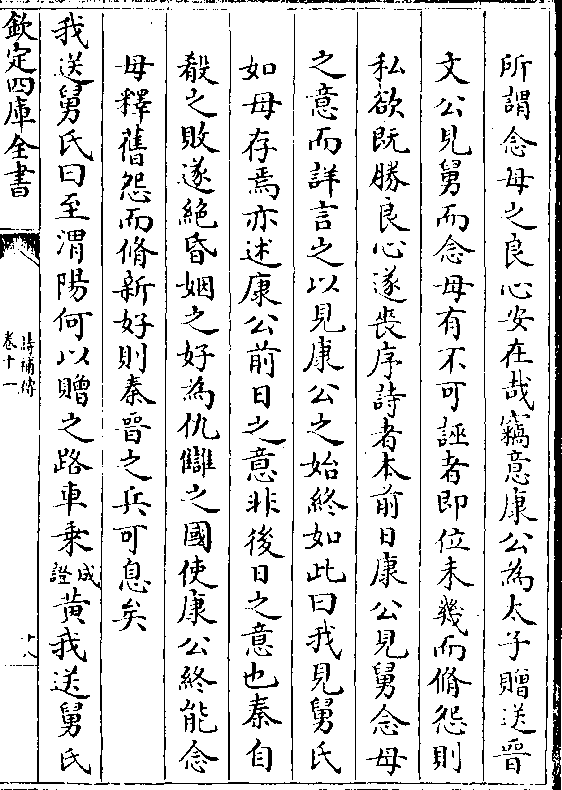 所謂念母之良心安在哉竊意康公為太子贈送晉
文公見舅而念母有不可誣者即位未幾而脩怨則
私欲既勝良心遂喪序詩者本前日康公見舅念母
之意而詳言之以見康公之始終如此曰我見舅氏
如母存焉亦述康公前日之意非後日之意也秦自
殽之敗遂絶昏姻之好為仇讎之國使康公終能念
母釋舊怨而脩新好則秦晉之兵可息矣
我送舅氏曰至渭陽何以贈之路車乗成證黄我送舅氏
欽定四庫全書
詩補傳
卷十一
十八